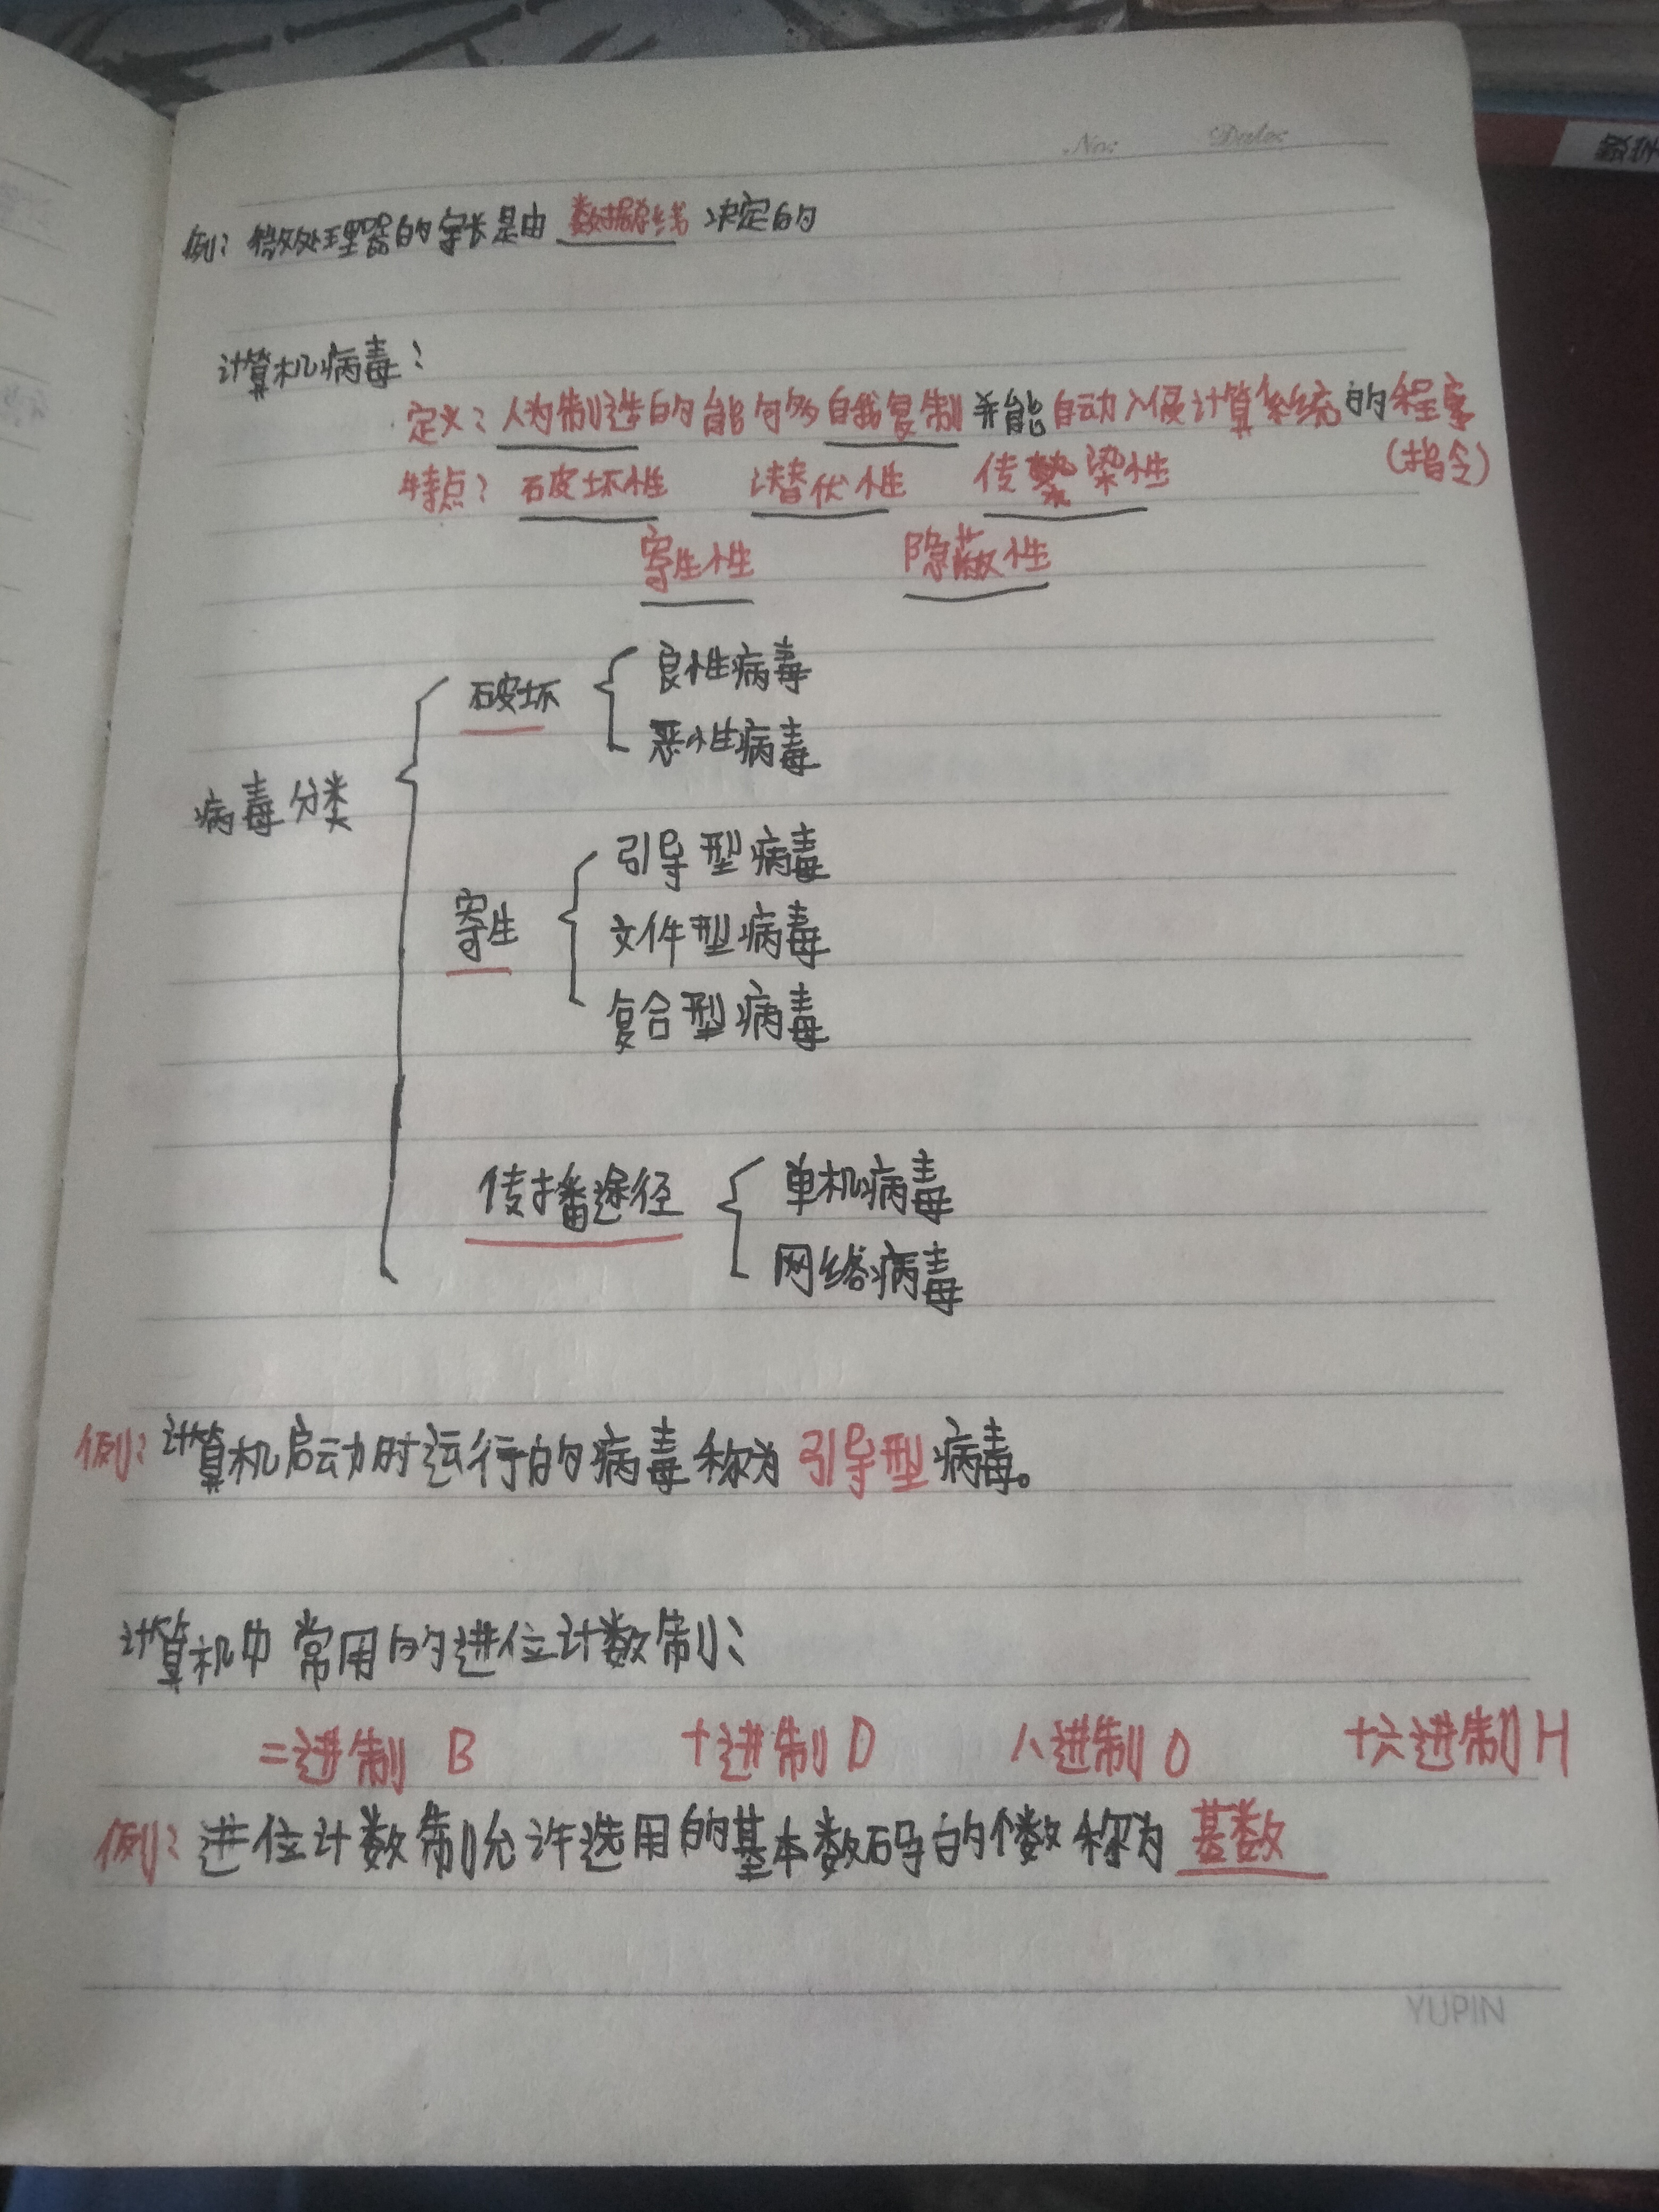 No: Date:
例：微处理器的字长是由 数据总线 决定的
计算机病毒：
定义：人为制造的能够自我复制并能自动入侵计算系统的程序
(指令)
特点：破坏性 潜伏性 传染性
寄生性 隐蔽性
病毒分类
破坏
良性病毒
恶性病毒
寄生
引导型病毒
文件型病毒
复合型病毒
传播途径
单机病毒
网络病毒
例：计算机启动时运行的病毒称为 引导型 病毒。
计算机中常用的进位计数制：
二进制 B 十进制 D 八进制 O 十六进制 H
例：进位计数制允许选用的基本数码的个数称为 基数
YUPIN